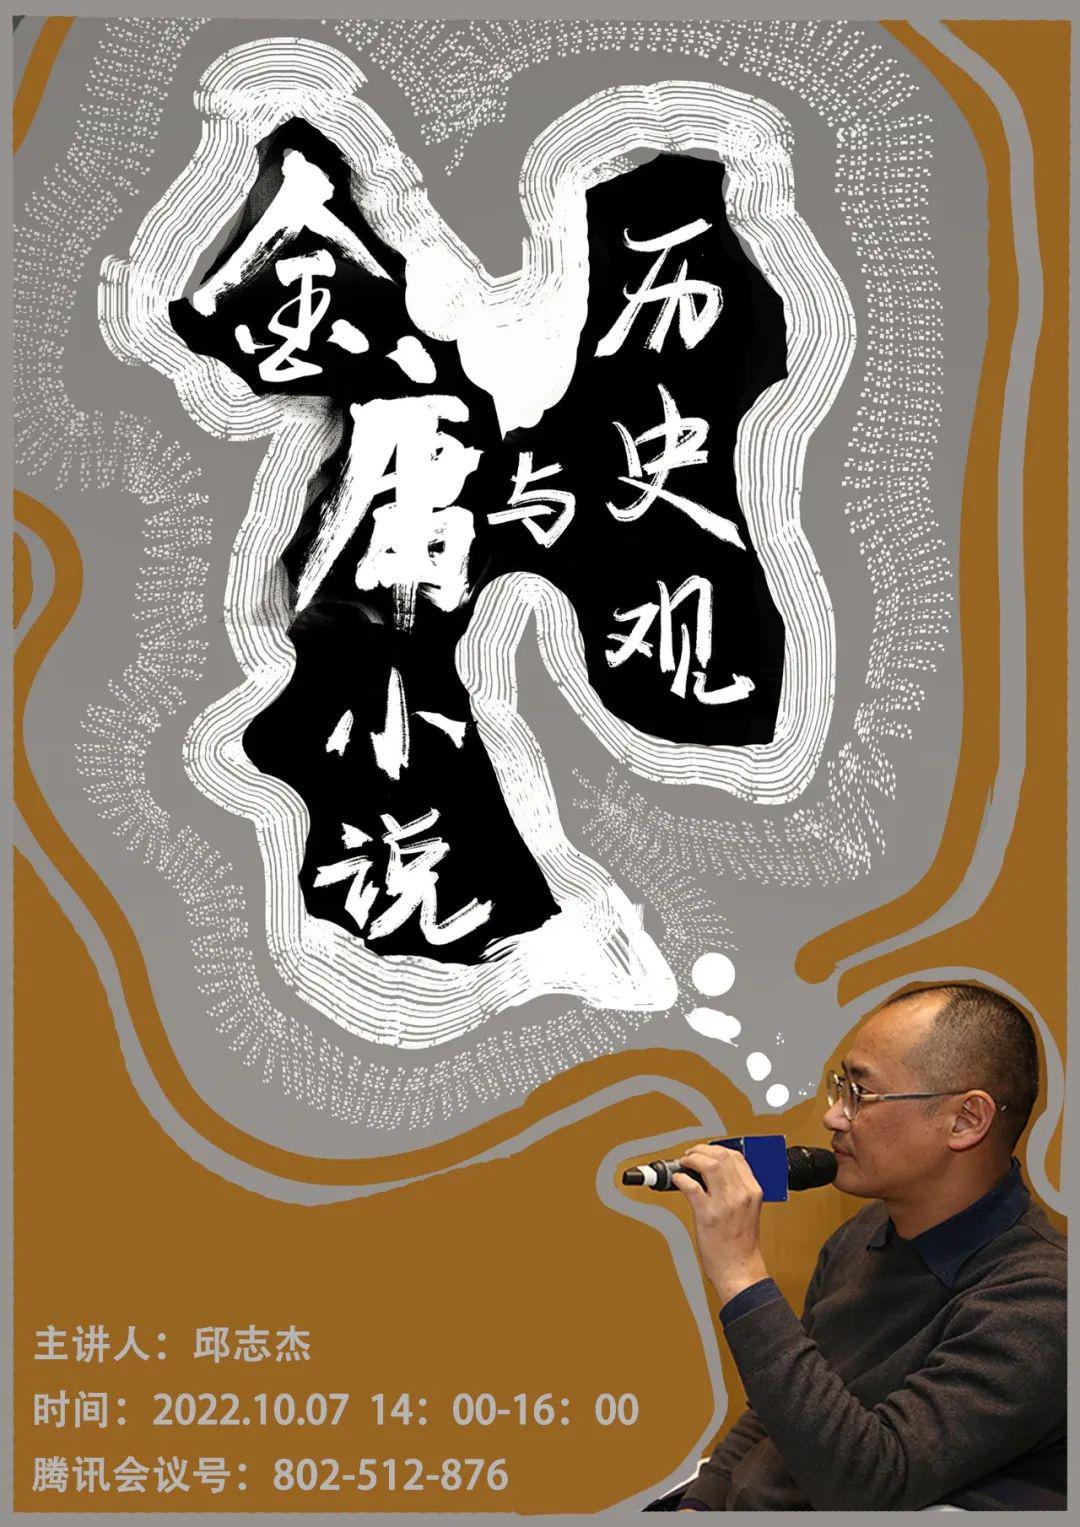 金庸小说
与
历史观
主讲人：邱志杰
时间：2022.10.07 14：00-16：00
腾讯会议号：802-512-876